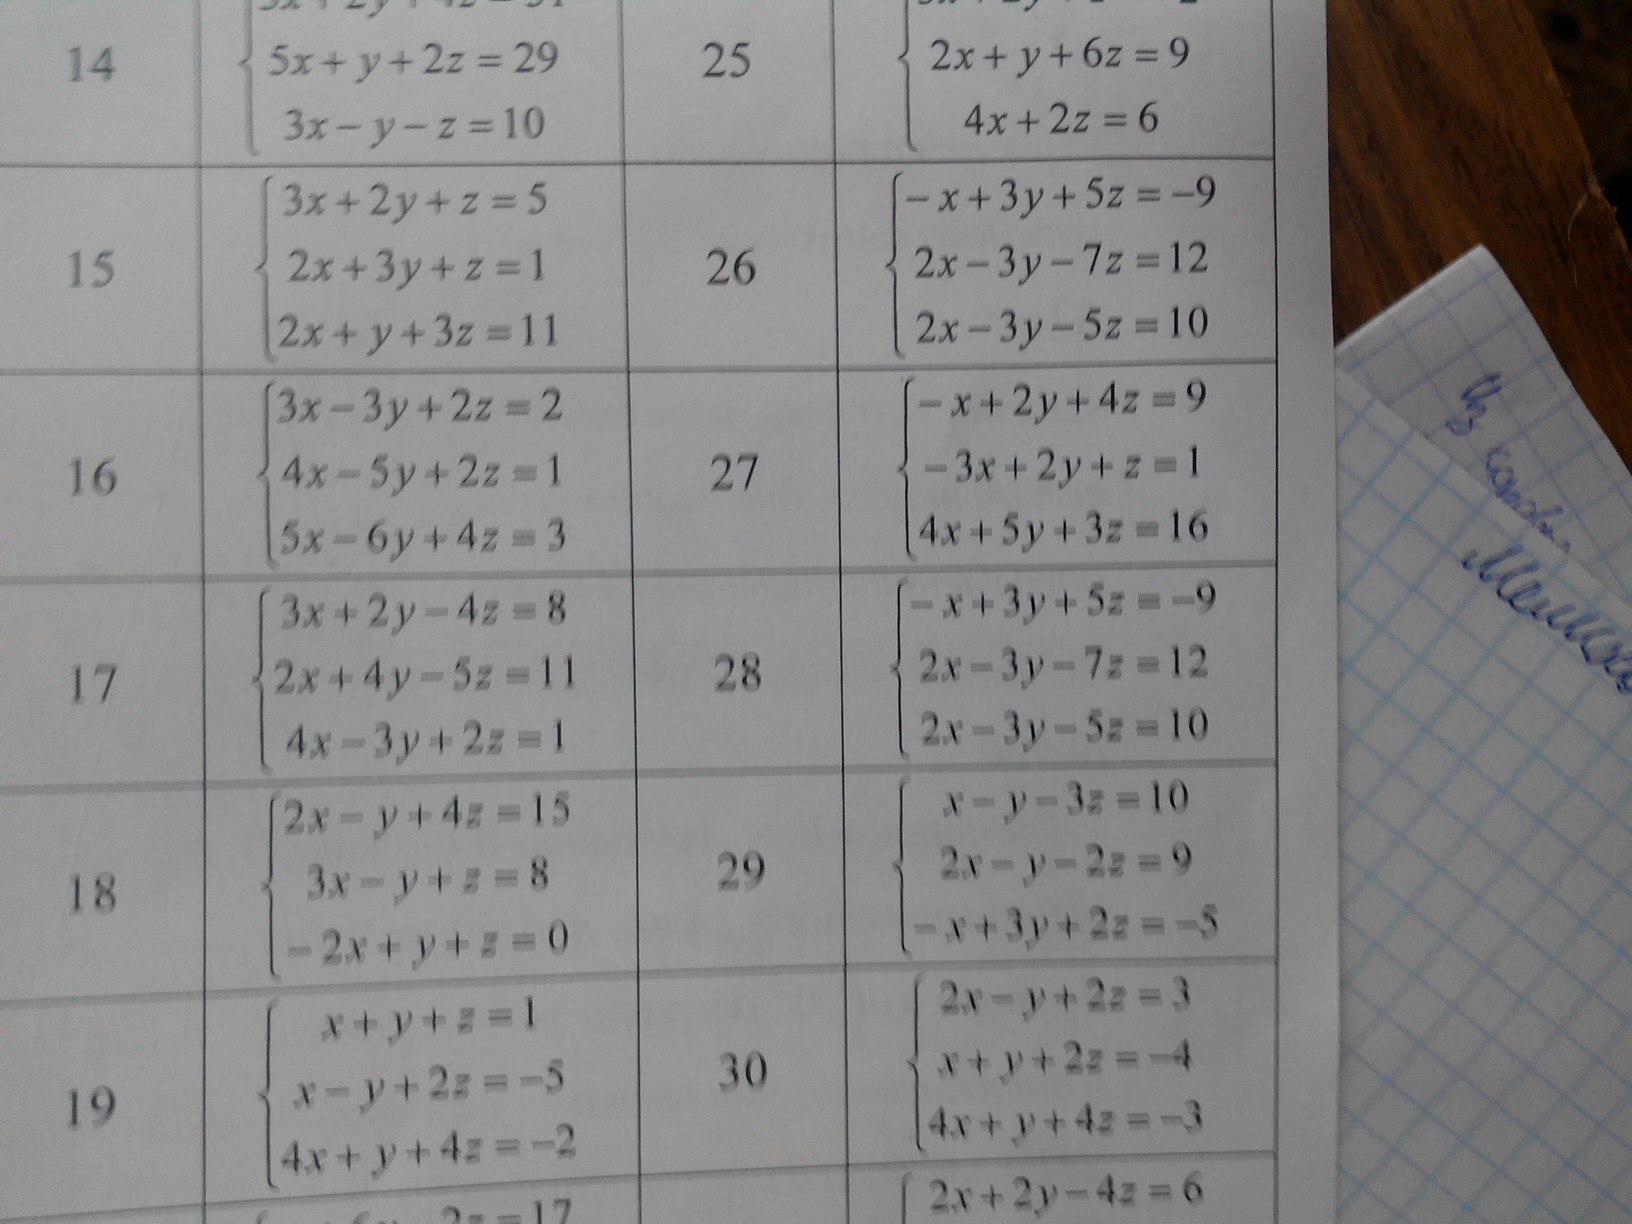 14
5x + y + 2z = 29
3x − y − z = 10
25
2x + y + 6z = 9
4x + 2z = 6
15
3x + 2y + z = 5
2x + 3y + z = 1
2x + y + 3z = 11
26
− x + 3y + 5z = −9
2x − 3y − 7z = 12
2x − 3y − 5z = 10
16
3x − 3y + 2z = 2
4x − 5y + 2z = 1
5x − 6y + 4z = 3
27
− x + 2y + 4z = 9
− 3x + 2y + z = 1
4x + 5y + 3z = 16
17
3x + 2y − 4z = 8
2x + 4y − 5z = 11
4x − 3y + 2z = 1
28
− x + 3y + 5z = −9
2x − 3y − 7z = 12
2x − 3y − 5z = 10
18
2x − y + 4z = 15
3x − y + z = 8
− 2x + y + z = 0
29
x − y − 3z = 10
2x − y − 2z = 9
− x + 3y + 2z = −5
19
x + y + z = 1
x − y + 2z = −5
4x + y + 4z = −2
30
2x − y + 2z = 3
x + y + 2z = −4
4x + y + 4z = −3
2z = 17
2x + 2y − 4z = 6
Из